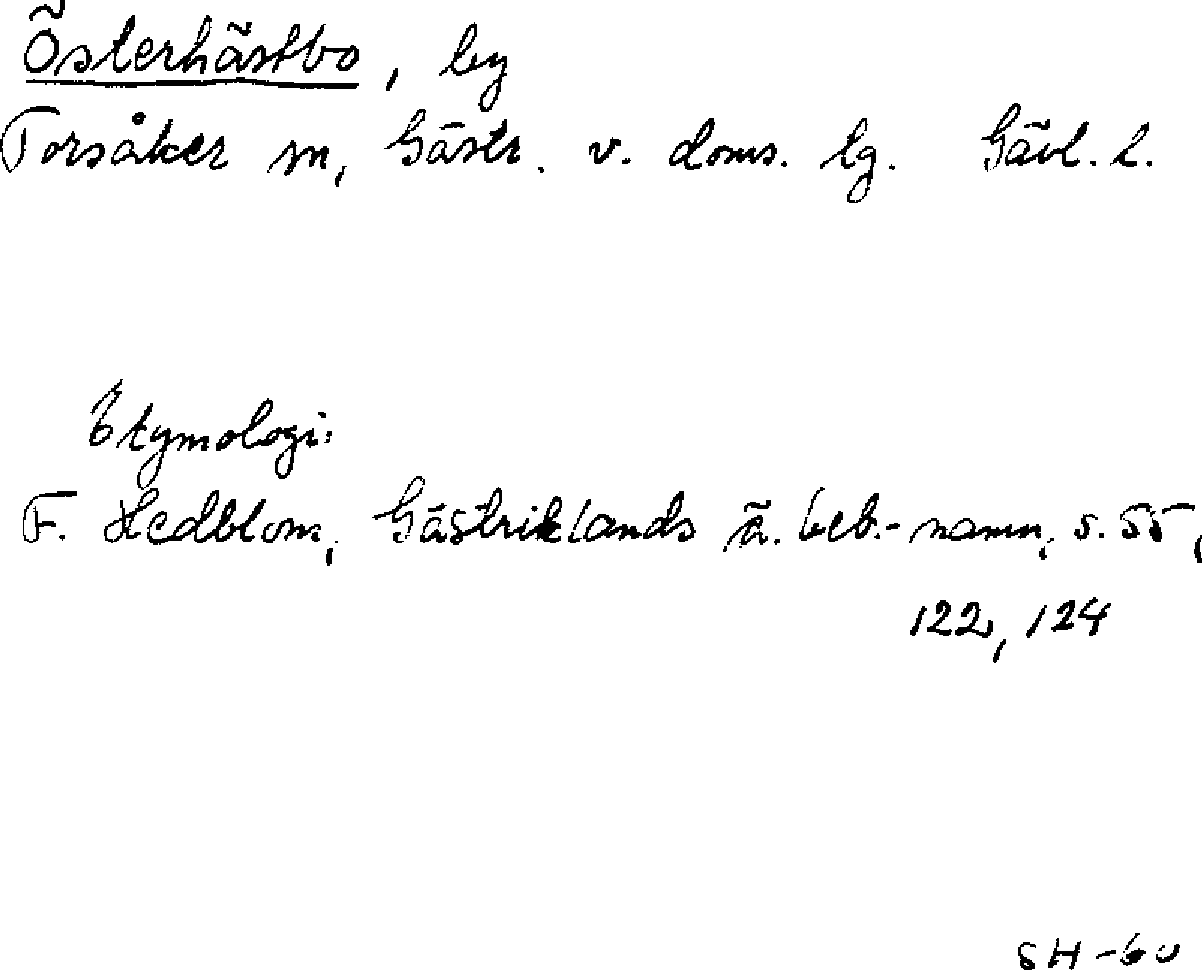 Österhästbo, by
Torsåker sn, Gästr. v. doms. lg. Gävl. l.
Etymologi:
F. Hedblom, Gästriklands ä. beb.-namn, s. 55,
122, 124
SH-60